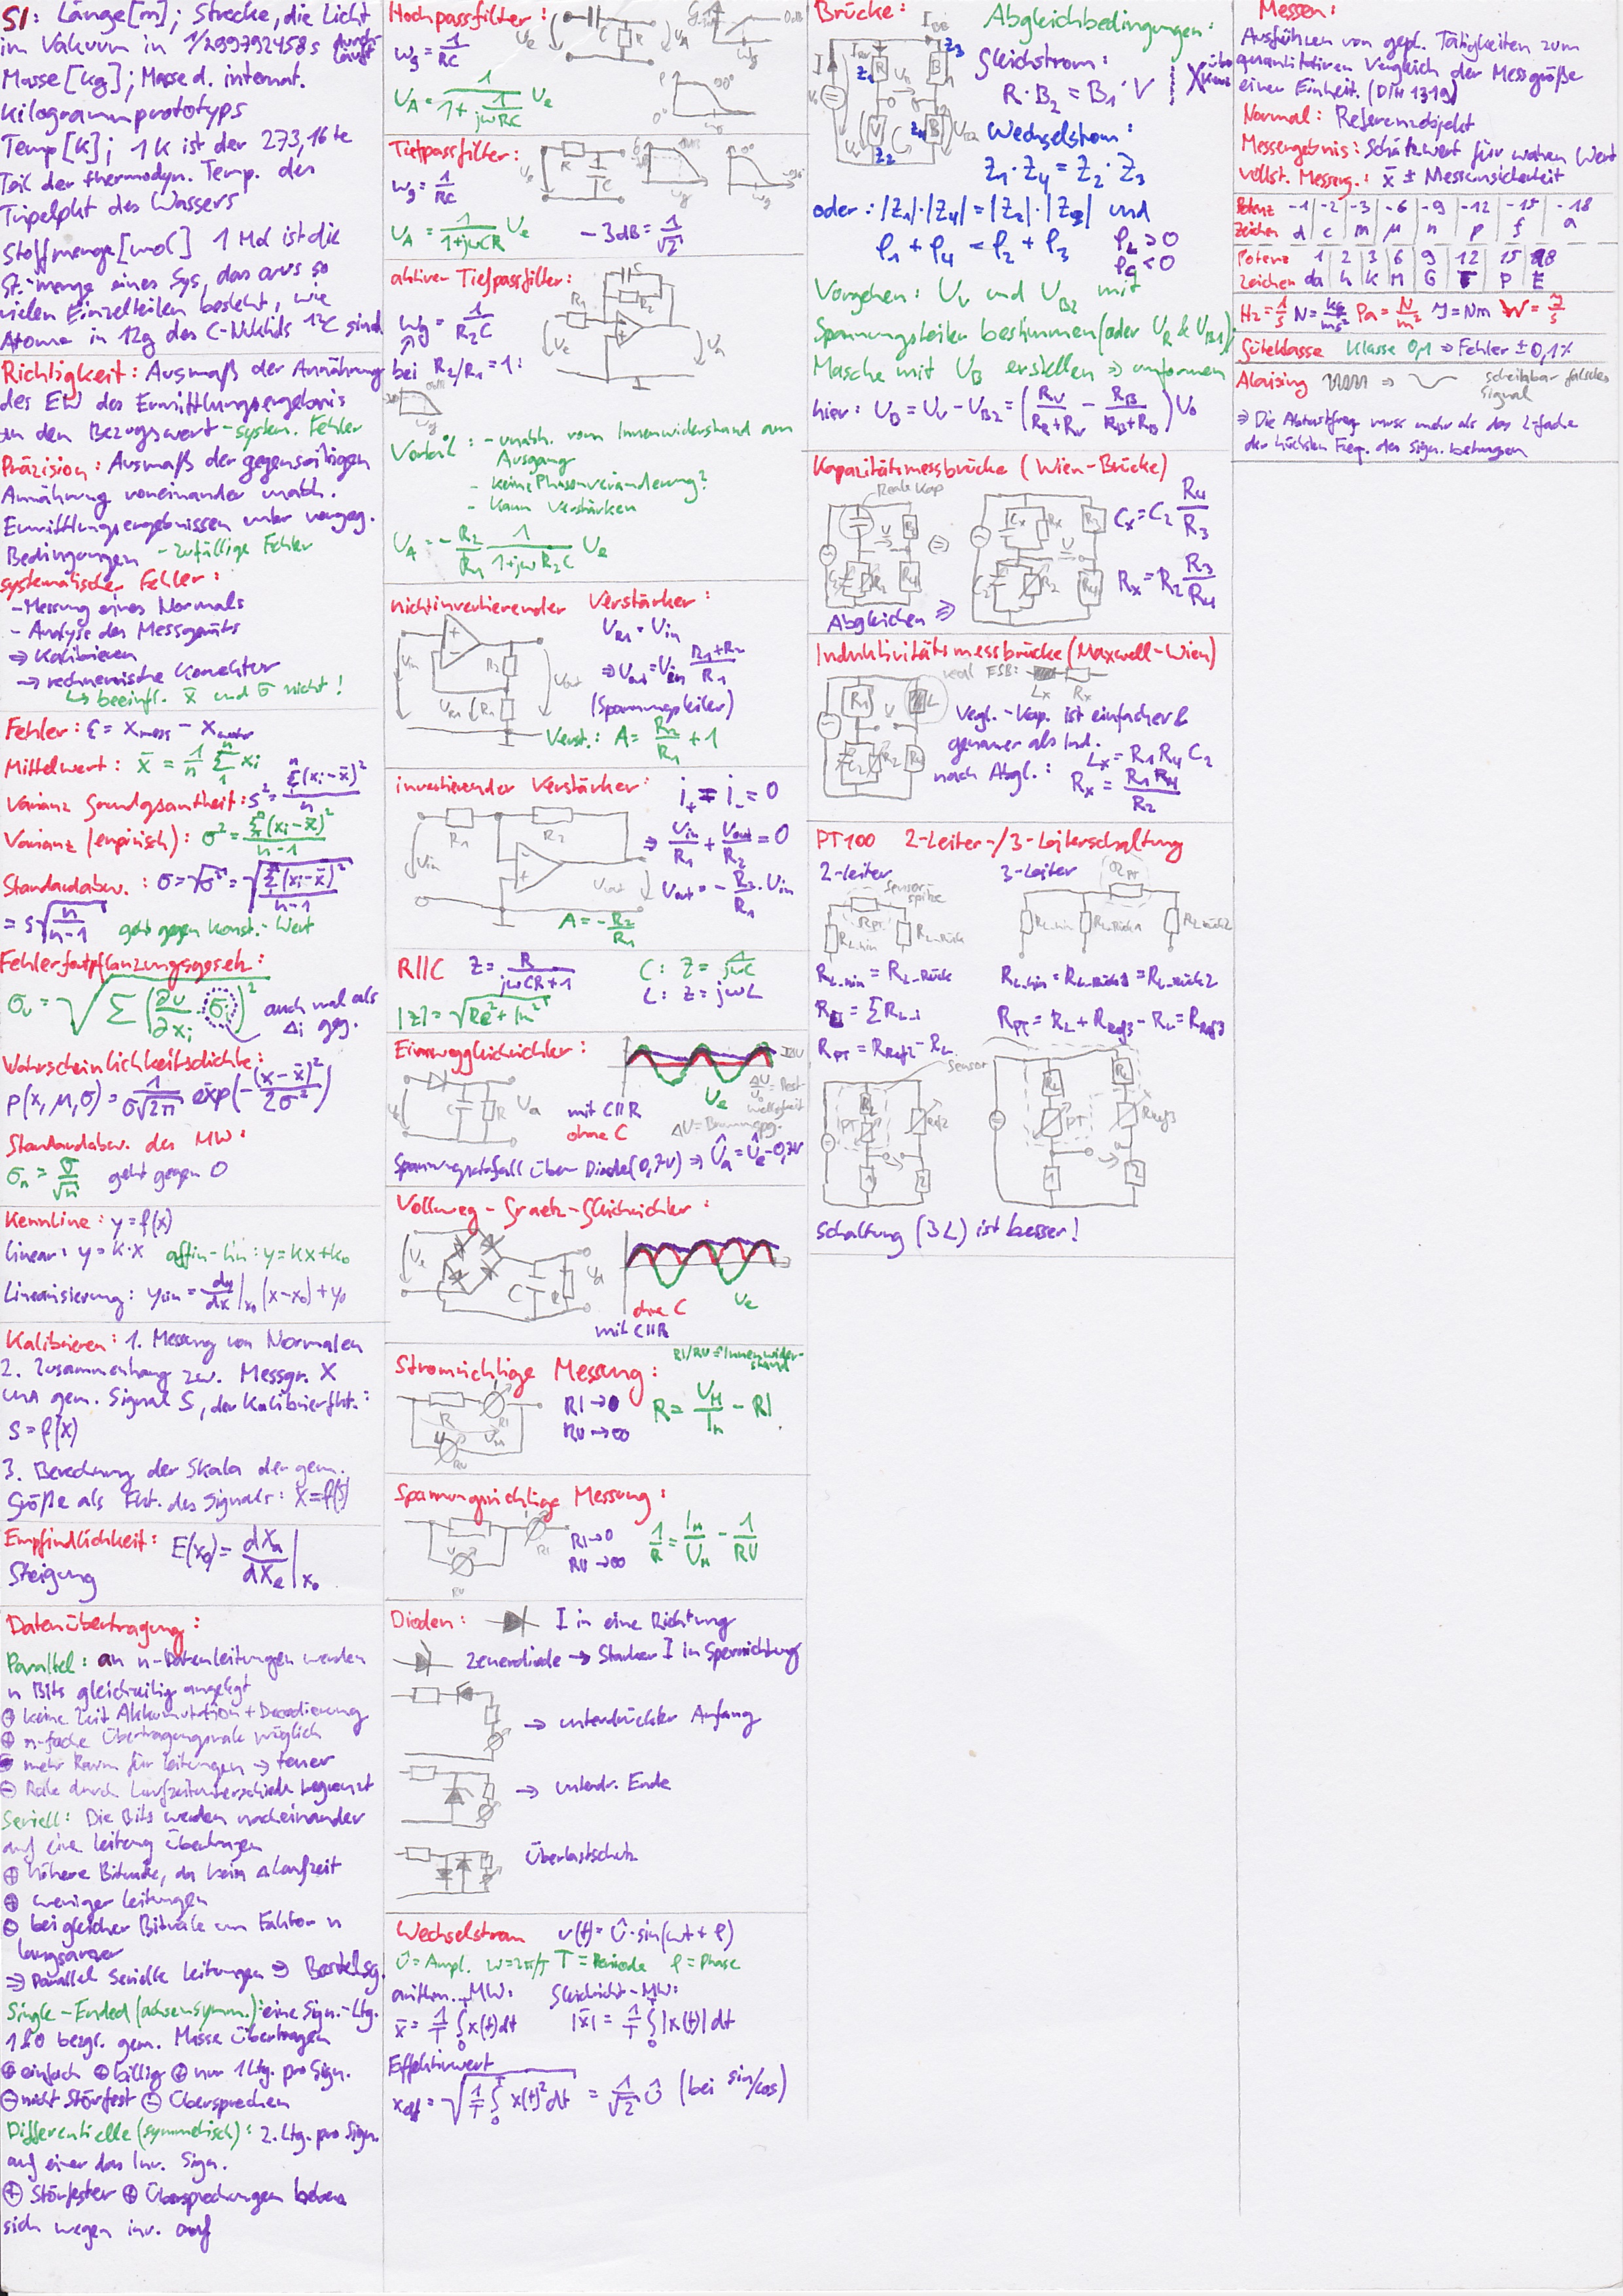 SI: Länge [m]; Strecke, die Licht
im Vakuum in 1/299792458 s durchläuft
Masse [kg]; Masse d. internat.
Kilogrammprototyps
Temp [K]; 1 K ist der 273,16te
Teil der thermodyn. Temp. des
Tripelpkt des Wassers
Stoffmenge [mol] 1 Mol ist die
St.menge eines Sys, das aus so
vielen Einzelteilen besteht, wie
Atome in 12g des C-Nuklids ¹²C sind
Richtigkeit: Ausmaß der Annährung
des EW des Ermittlungsergebnis
an den Bezugswert - system. Fehler
Präzision: Ausmaß der gegenseitigen
Annährung voneinander unabh.
Ermittlungsergebnissen unter vorgeg.
Bedingungen - zufällige Fehler
systematischer Fehler:
- Messung eines Normals
- Analyse des Messgeräts
⇒ Kalibrieren
→ rechnerische Korrektur
↳ beeinfl. x̄ und σ nicht!
Fehler: ε = x_mess - x_wahr
Mittelwert: x̄ = 1/n Σ xi
Varianz Grundgesamtheit: s² = Σ(xi-x̄)²/n
Varianz (empirisch): σ² = Σ(xi-x̄)²/(n-1)
Standardabw.: σ = √σ² = √(Σ(xi-x̄)²/(n-1))
= s √(n/(n-1)) geht gegen konst.-Wert
Fehlerfortpflanzungsgesetz:
σ_v = √(Σ(∂v/∂xi · σi)²) auch mal als
Δi geg.
Wahrscheinlichkeitsdichte:
p(x, μ, σ) = 1/(σ√2π) exp(-(x-x̄)²/2σ²)
Standardabw. des MW:
σn = σ/√n geht gegen 0
Kennline: y = f(x)
linear: y = k·x affin-lin: y = kx+k₀
Linearisierung: y_lin = dy/dx |x₀ (x-x₀)+y₀
Kalibrieren: 1. Messung von Normalen
2. Zusammenhang zw. Messgr. X
und gem. Signal S, der Kalibrierfkt.:
S = f(x)
3. Berechnung der Skala der gem.
Größe als Fkt. des Signals: X = f(S)
Empfindlichkeit: E(x₀) = dXa/dXe |x₀
Steigung
Datenübertragung:
Parallel: an n-Datenleitungen werden
n Bits gleichzeitig angelegt
⊕ keine Zeit Akkumutation + Decodierung
⊕ n-fache Übertragungsrate möglich
⊖ mehr Raum für Leitungen → teuer
⊖ Rate durch Laufzeitunterschiede begrenzt
Seriell: Die Bits werden nacheinander
auf eine Leitung übertragen
⊕ höhere Bitrate, da kein Δ Laufzeit
⊕ weniger Leitungen
⊖ bei gleicher Bitrate um Faktor n
langsamer
⇒ Parallel Serielle Leitungen ⇒
Single-Ended (achsensymm.): eine Sign.-Ltg.
1&0 bezgl. gem. Masse übertragen
⊕ einfach ⊕ billig ⊕ nur 1 Ltg. pro Sign.
⊖ nicht Störfest ⊖ Übersprechen
Differentielle (symmetrisch): 2. Ltg. pro Sign.
auf einer das Inv. Sign.
⊕ Störfester ⊕ Übersprechungen heben
sich wegen inv. auf
Hochpassfilter:
ωg = 1/RC
U_A = 1/(1+ 1/jωRC) Ue
Tiefpassfilter:
ωg = 1/RC
U_A = 1/(1+jωCR) Ue -3dB = 1/√2
aktiven Tiefpassfilter:
ωg = 1/R₂C
bei R₂/R₁ = 1:
Vorteil: - unabh. vom Innenwiderstand am
Ausgang
- keine Phasenveränderung?
- kann verstärken
U_A = -R₂/R₁ 1/(1+jωR₂C) Ue
nichtinvertierender Verstärker:
U_R1 = Vin
⇒ Vout = Vin (R₁+R₂)/R₁
(Spannungsteiler)
Verst.: A = R₂/R₁ + 1
invertierender Verstärker:
i₊ = i₋ = 0
⇒ Vin/R₁ + Vout/R₂ = 0
Vout = -R₂/R₁ · Vin
A = -R₂/R₁
R||C Z = R/(jωCR+1) C: Z = 1/jωC
L: Z = jωL
|Z| = √(Re²+Im²)
Einweggleichrichter:
mit C||R
ohne C
Ue
ΔU = Brummspg.
Spannungsabfall über Diode (0,7V) ⇒ Ûa = Ûe-0,7V
Vollweg-Graetz-Gleichrichter:
ohne C Ue
mit C||R
Stromrichtige Messung: RI/RU = Innenwiderstand
RI → 0
RU → ∞
R = U_M/I_M - RI
Spannungsrichtige Messung:
RI → 0
RU → ∞
1/R = I_M/U_M - 1/RU
Dioden: I in eine Richtung
Zenerdiode → Starker I in Sperrrichtung
→ unterdrückter Anfang
→ unterdr. Ende
Überlastschutz
Wechselstrom u(t) = Û·sin(ωt+φ)
Û = Ampl. ω = 2π/T T = Periode φ = Phase
arithm. MW: Gleichricht-MW:
x̄ = 1/T ∫x(t)dt |x̄| = 1/T ∫|x(t)|dt
Effektivwert
x_eff = √(1/T ∫x(t)²dt) = 1/√2 Û (bei sin/cos)
Brücke: Abgleichbedingungen:
Gleichstrom:
R·B₂ = B₁·V
Wechselstrom:
Z₁·Z₄ = Z₂·Z₃
oder: |Z₁|·|Z₄| = |Z₂|·|Z₃| und
φ₁+φ₄ = φ₂+φ₃
φL > 0
φC < 0
Vorgehen: Uv und U_B2 mit
Spannungsteilern bestimmen (oder U_R & U_B1)
Masche mit U_B erstellen ⇒ umformen
hier: U_B = U_V - U_B2 = (R_V/(R_R+R_V) - R_B/(R_B+R_B)) U₀
Kapazitätsmessbrücke (Wien-Brücke)
Reale Kap
Cx = C₂ R₄/R₃
Rx = R₂ R₃/R₄
Abgleichen ⇒
Induktivitätsmessbrücke (Maxwell-Wien)
real ESB: Lx Rx
Vergl.-Kap. ist einfacher &
genauer als Ind.
nach Abgl.: Lx = R₁R₄C₂
Rx = R₁R₄/R₂
PT100 2-Leiter-/3-Leiterschaltung
2-Leiter 3-Leiter
Sensorspitze
R_L-hin = R_L-Rück R_L-hin = R_L-Rück1 = R_L-Rück2
R_L = ΣR_L-i R_PT = R_L + R_Ref3 - R_L = R_Ref3
R_PT = R_Ref2 - R_L
Sensor
Schaltung (3L) ist besser!
Messen:
Ausführen von gepl. Tätigkeiten zum
quantitativen Vergleich der Messgröße
einer Einheit. (DIN 1319)
Normal: Referenzobjekt
Messergebnis: Schätzwert für wahren Wert
vollst. Messerg.: x̄ ± Messunsicherheit
Potenz -1 -2 -3 -6 -9 -12 -15 -18
Zeichen d c m μ n p f a
Potenz 1 2 3 6 9 12 15 18
Zeichen da h k M G T P E
Hz = 1/s N = kg/ms² Pa = N/m² J = Nm W = J/s
Güteklasse Klasse 0,1 ⇒ Fehler ±0,1%
Alaising ⇒ scheinbar falsches
Signal
⇒ Die Abtastfreq muss mehr als das 2-fache
der höchsten Freq. des Sign. betragen